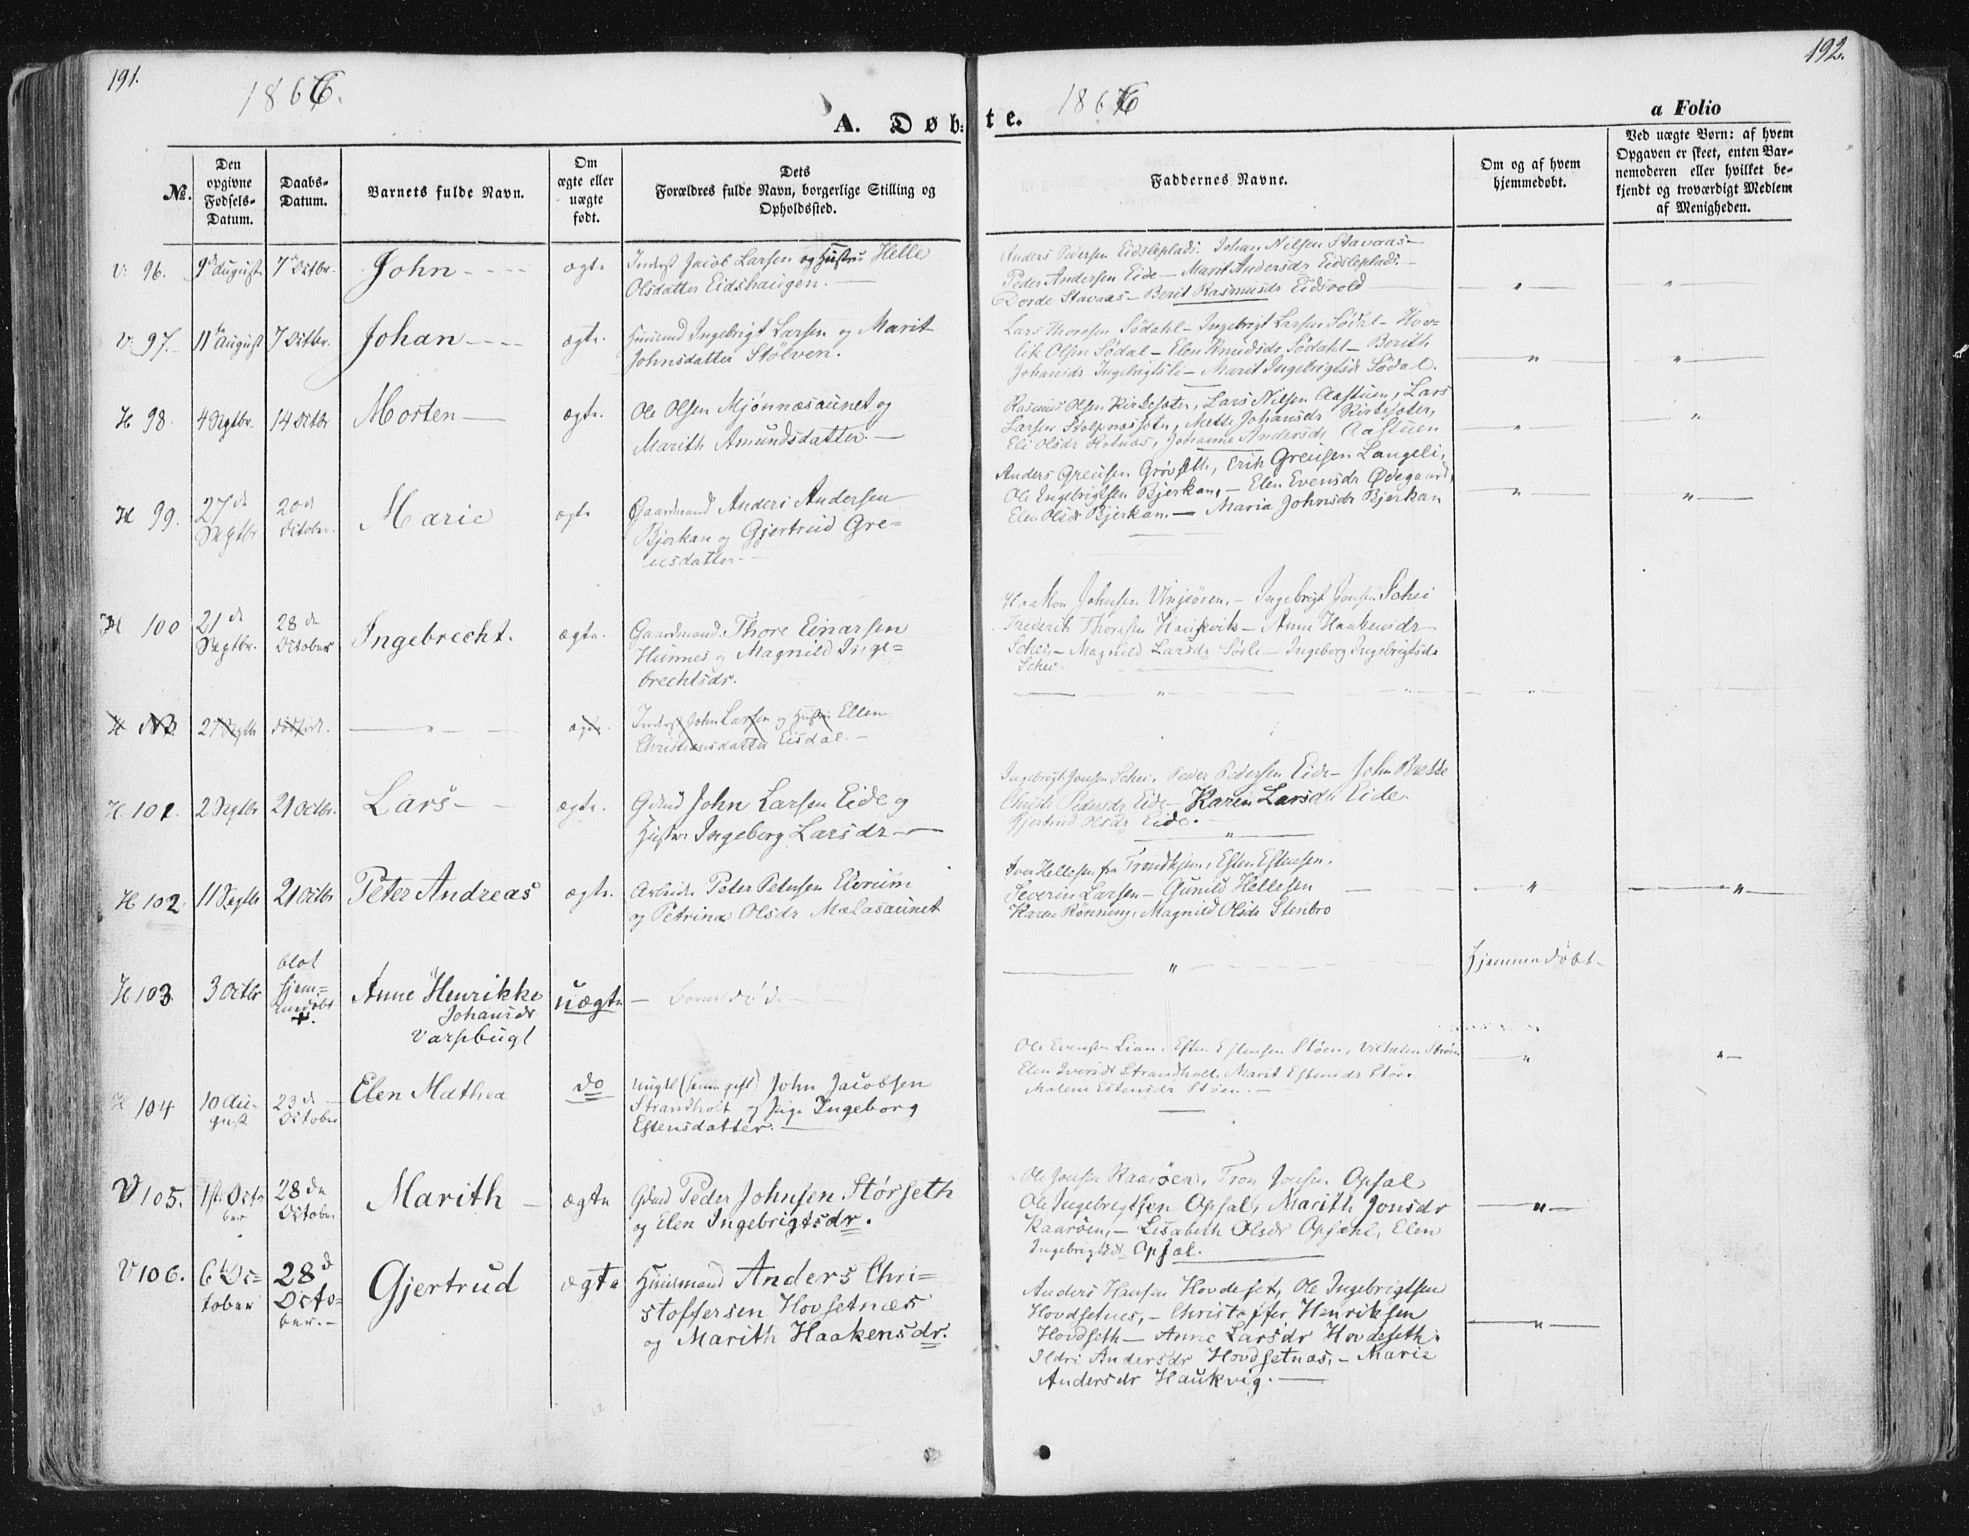 191.
1866.
A. Døb:
№.
Den opgivne Fødsels-Datum.
Daabs-Datum.
Barnets fulde Navn.
Om ægte eller uægte født.
Dets Forældres fulde Navn, borgerlige Stilling og Opholdssted.
V. 96. 9d August 7 Octbr. John ægte Inderst Jacob Larsen og Hustru Helle
Olsdatter Eidshaugen.
V. 97. 11 August 7 Octbr. Johan ægte. Huusmd Ingebrigt Larsen og Marit
Johnsdatter Stölven.
H 98. 4 Septbr. 14 Octbr Morten ægte. Ole Olsen Mjönnæsaunet og
Marith Amundsdatter.
H 99. 27de Septbr 20de October. Marie ægte Gaardmand Anders Andersen
Bjerkan og Gjertrud Gre-
usdatter.
H 100 21de Septbr. 28de October Ingebrecht. ægte. Gaardmand. Thore Einarsen
Hunnes og Magnild Inge-
brechtsdr.
H ægte. Inderst John Larsen og Hustru Ellen
Christiansdatter Eisdal.
H 101. 2 Septbr 21 Octbr. Lars ægte. Gdmd John Larsen Eide og
Hustru Ingeborg Larsdr
H 102 11 Septbr 21 Octbr Peter Andreas ægte. Arbeider Peter Petersen Elvrum
og Petrina Olsdr Mælasaunet
H 103. 3 Octbr blot hjemmedøbt +. Anne Henrikke
Johansdr
Varpbugt uægte
104 10 August 23de October Elen Mathea do Ungkl John Jacobsen
Strandholt og Pige Ingeborg
Estensdatter.
V 105. 1ste October 28de October Marith ægte Gdmd Peder Johnsen Størseth
og Elen Ingebrigtsdr.
V 106. 6te October 28de October. Gjertrud ægte Huusmand Anders Chri-
stoffersen Hovsetnæs
og Marith Haakensdr.
192.
1866
te.
a Folio
Faddernes Navne.
Om og af hvem hjemmedøbt.
Ved uægte Børn: af hvem Opgaven er skeet, enten Barnemoderen eller hvilket bekjendt og troværdigt Medlem af Menigheden.
Anders Pedersen Eidsleplads. Johan Nilsen Stavaas
Peder Andersen Eide – Marit Andersdr Eidsleplads.
Dorde Stavaas – Berit Rasmusdr Eidsvold
Lars Thoresen Södahl – Ingebrigt Larsen Södal – Hov-
lik Olsen Södal – Elen Knudsdr Södahl – Berith
Johansdr Ingebrigtsli – Marit Ingebrigtsdr Södal.
Rasmus Olsen Kirkesæter, Lars Nilsen Aastuen, Lars
Larsen Stolpnæssæter, Mette Johansdr Kirkesæter,
Eli Olsdr Holnæs, Johanne Andersdr Aastuen
Anders Greusen Grøvseth, Erik Greusen Langeli,
Ole Ingebrigtsen Bjerkan, – Elen Evensdr Ødegaard,
Elen Olsdr Bjerkan. – Maria Johnsdr Bjerkan
Haakon Johnsen Vinjeören, – Ingebrigt Jonsen Schei
Frederik Thoresen Haukvik – Anne Haakensdr
Schei, – Magnild Larsdr Sörli – Ingeborg Ingebrigtsdr
Schei.
Ingebrigt Jonsen Schei, Peder Pedersen Eide – John
Pedersdr Eide – Karen Larsdr Eide.
Gjertrud Olsdr Eide.
Iver Hellesen fra Trondhjem, Esten Estensen,
Severin Larsen – Gunild Hellesen
Karen Rönning, Magnild Olsdr Stenbro
Hjemmedøbt
Ole Evensen Lian. Esten Estensen Støen, Vilhelm Strøm
Elen Iversdr Strandholt, Marit Estensdr Støe.
Malene Estensdr Støen.
Ole Jonsen Kaarøen, Tron Jonsen Opsal
Ole Ingebrigtsen Opsal, Marith Jonsdr
Kaarøen, – Lisabeth Olsdr Opsahl, Elen
Ingebrigtsdr Opsal.
Anders Hansen Hovdeset, Ole Ingebrigtsen
Hovdsetnes, – Christoffer Henriksen
Hovdseth – Anne Larsdr Hovdeseth.
Ildri Andersdr Hovdsetnæs, – Marie
Andersdr Haukvig.